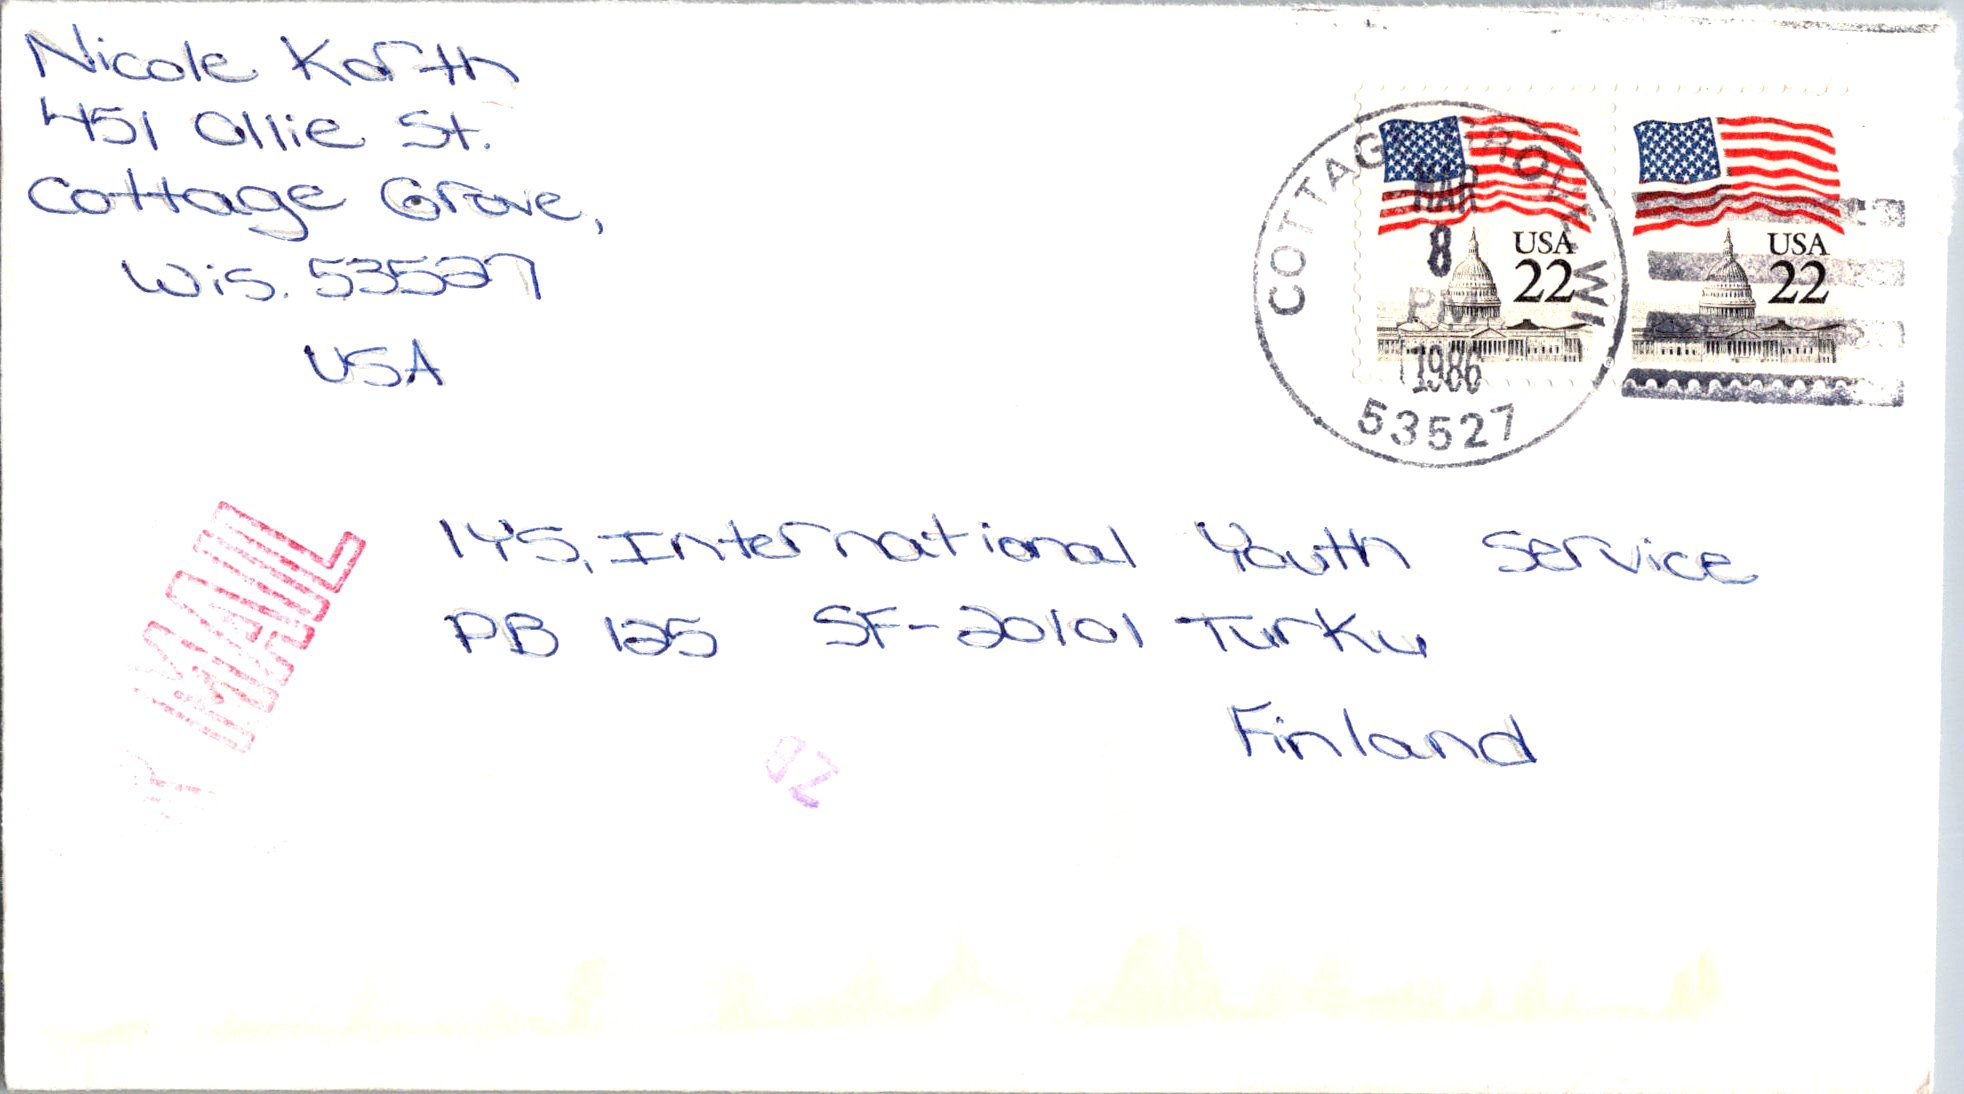 Nicole Korth
451 Ollie St.
Cottage Grove,
Wis. 53527
USA
COTTAGE GROVE, WI
MAR
8
PM
1986
53527
USA
22
USA
22
MAIL
IYS, International Youth Service
PB 125 SF-20101 Turku
Finland